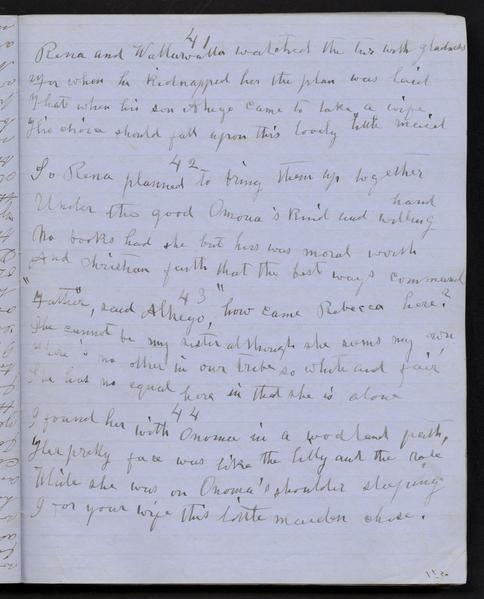 41
Rena and Wattawatta watched the two with gladness
For when he kidnapped her the plan was laid
That when his son Alhego came to take a wife
His choice should fall upon this lovely little maid
42
So Rena planned to bring them up together
Under the good Onoma's kind and willing hand
No books had she but hers was moral worth
And Christian faith that the best ways command
43
"Father", said Alhego, "how came Rebecca here?
She cannot be my sister although she seems my own
There's no other in our tribe so white and fair
She has no equal here in that she is alone
44
I found her with Onoma in a woodland path,
Her pretty face was like the lilly and the rose
While she was on Onoma's shoulder sleeping
I for your wife this little maiden chose.